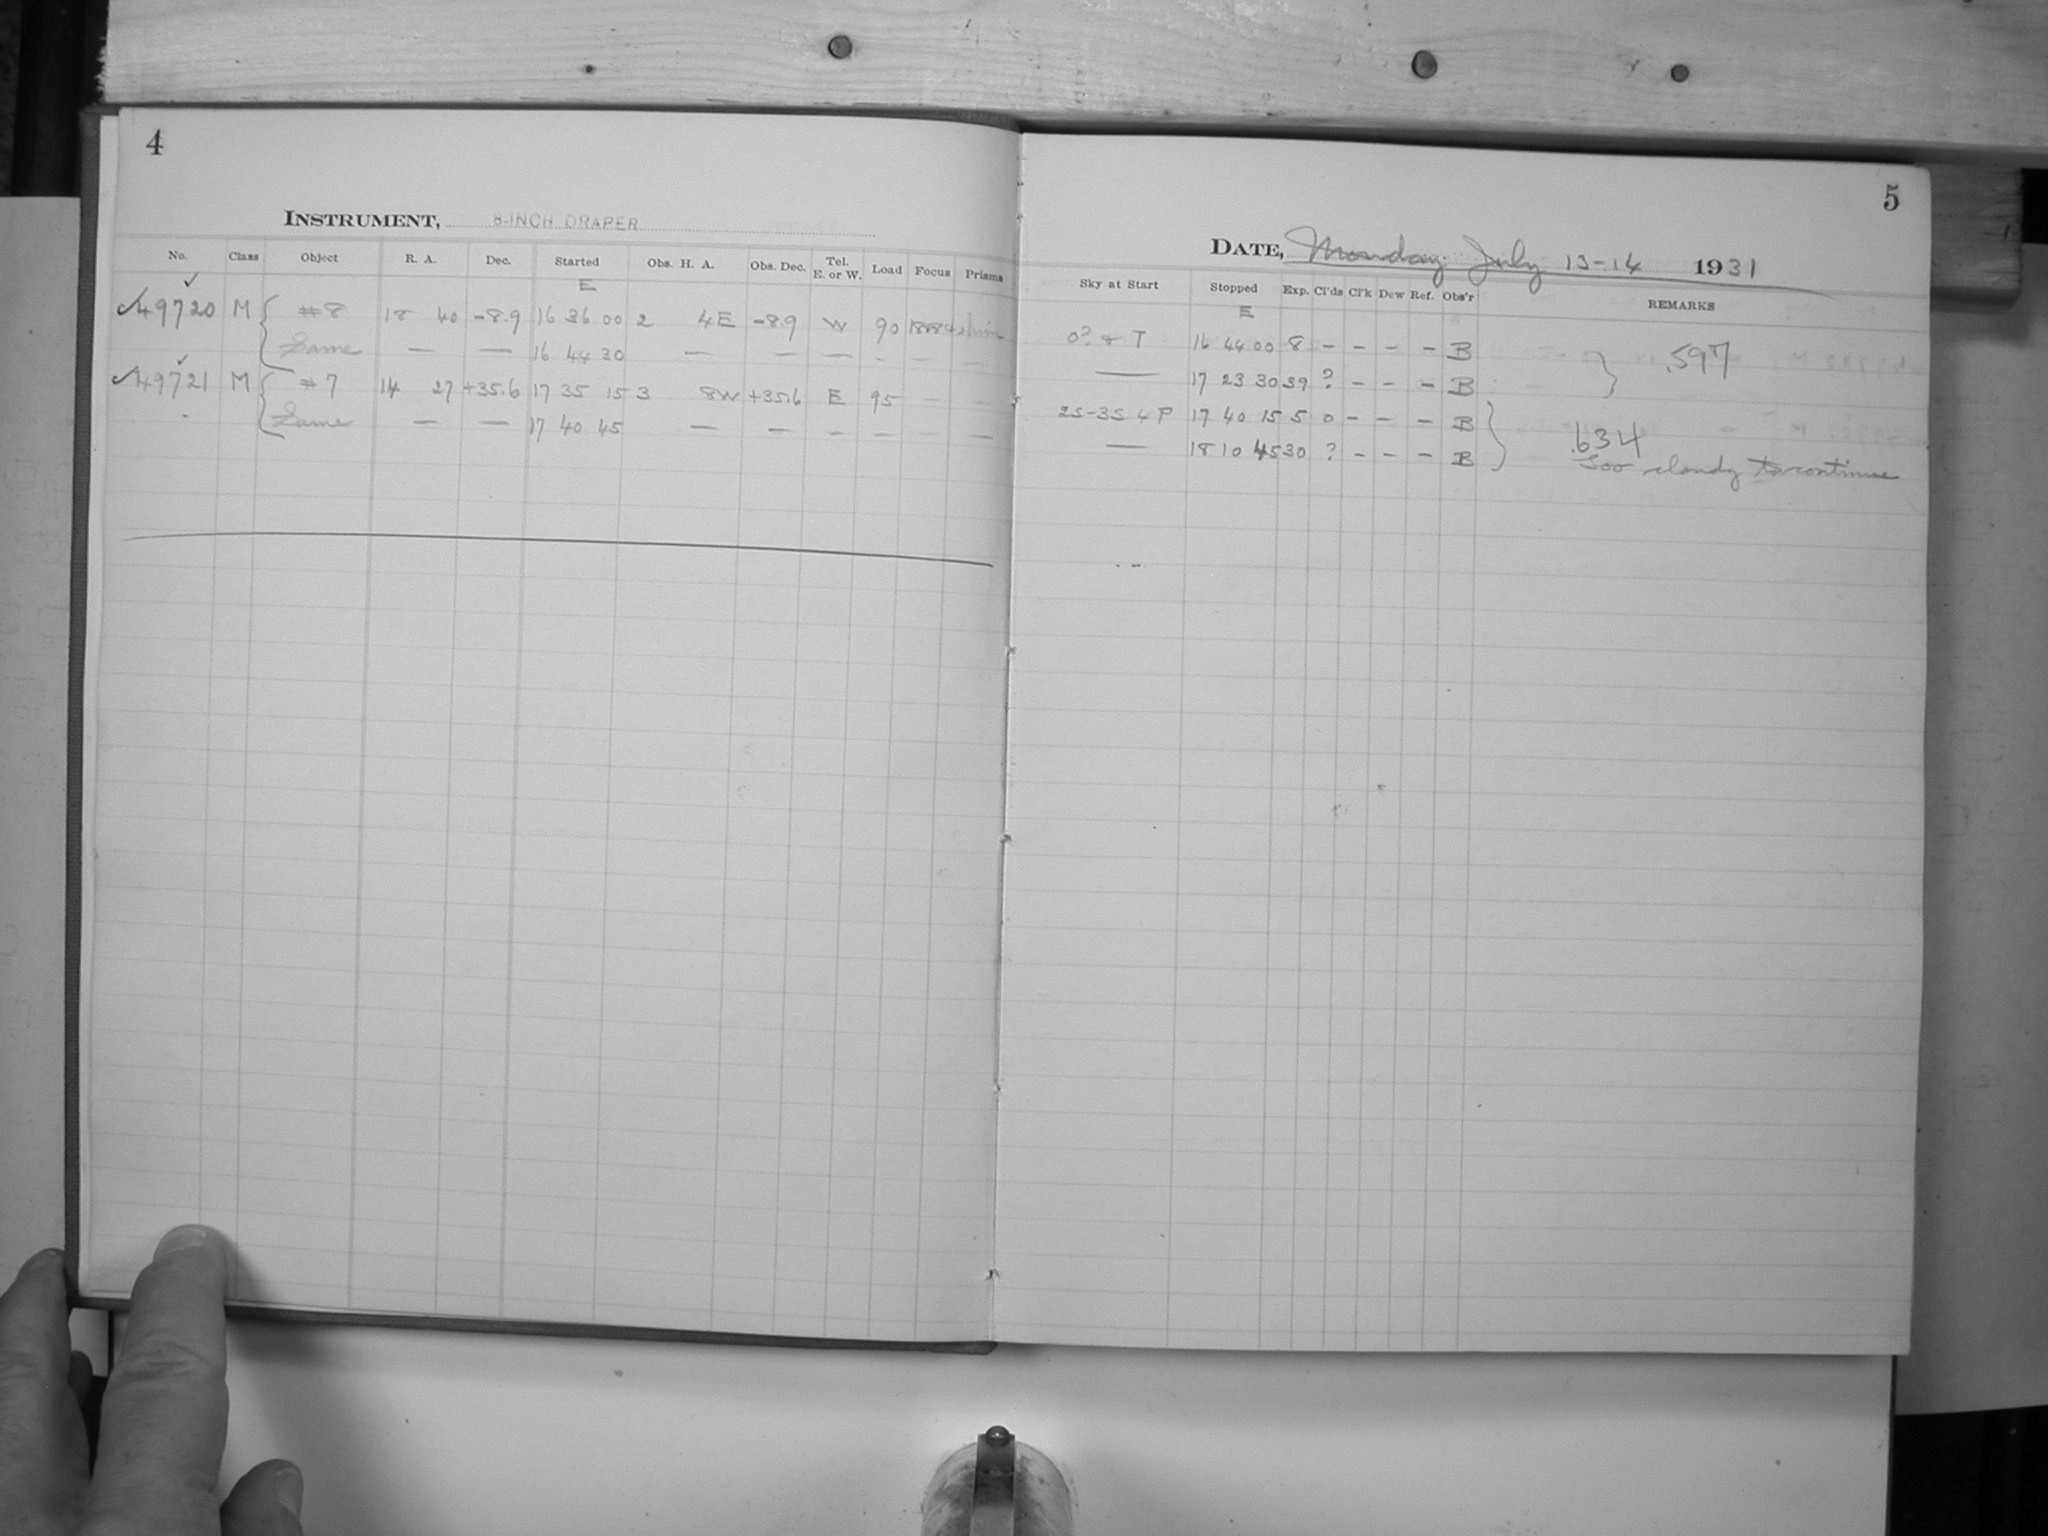 4
INSTRUMENT, 8-INCH DRAPER
No. Class Object R. A. Dec. Started Obs. H. A. Obs. Dec. Tel. E. or W. Load Focus Prisms
E
✓49720 ✓ M #8 18 40 -8.9 16 36 00 2 4E -8.9 W 90
Same — — 16 44 30 — — — - — —
✓49721 ✓ M #7 14 27 +35.6 17 35 15 3 8W +35.6 E 95 — —
Same — — 17 40 45 — — — — — —
5
DATE, Monday July 13-14 1931
Sky at Start Stopped Exp. Cl'ds Cl'k Dew Ref. Obs'r REMARKS
E
0? & T 16 44 00 8 - - - - B .597
— 17 23 30 39 ? - - - B
2S-3S 4 P 17 40 15 5 0 - - - B .634
— 18 10 45 30 ? - - - B Too cloudy to continue